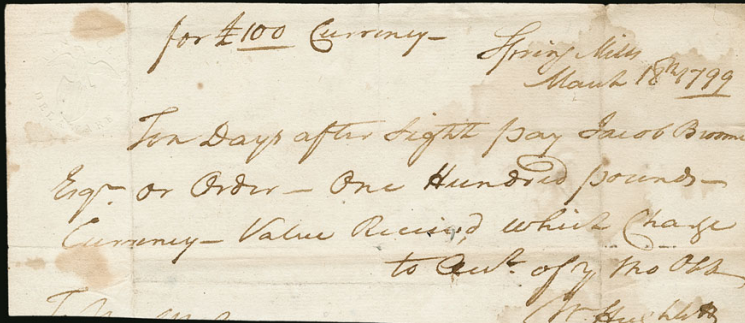 for £100 Currency –
Spring Mills
March 18th 1799
Ten Days after Sight pay Jacob Broome
Esqr or Order – One Hundred pounds –
Currency – Value Receivd which Charge
to Acct. of yr Mo Obt
W.